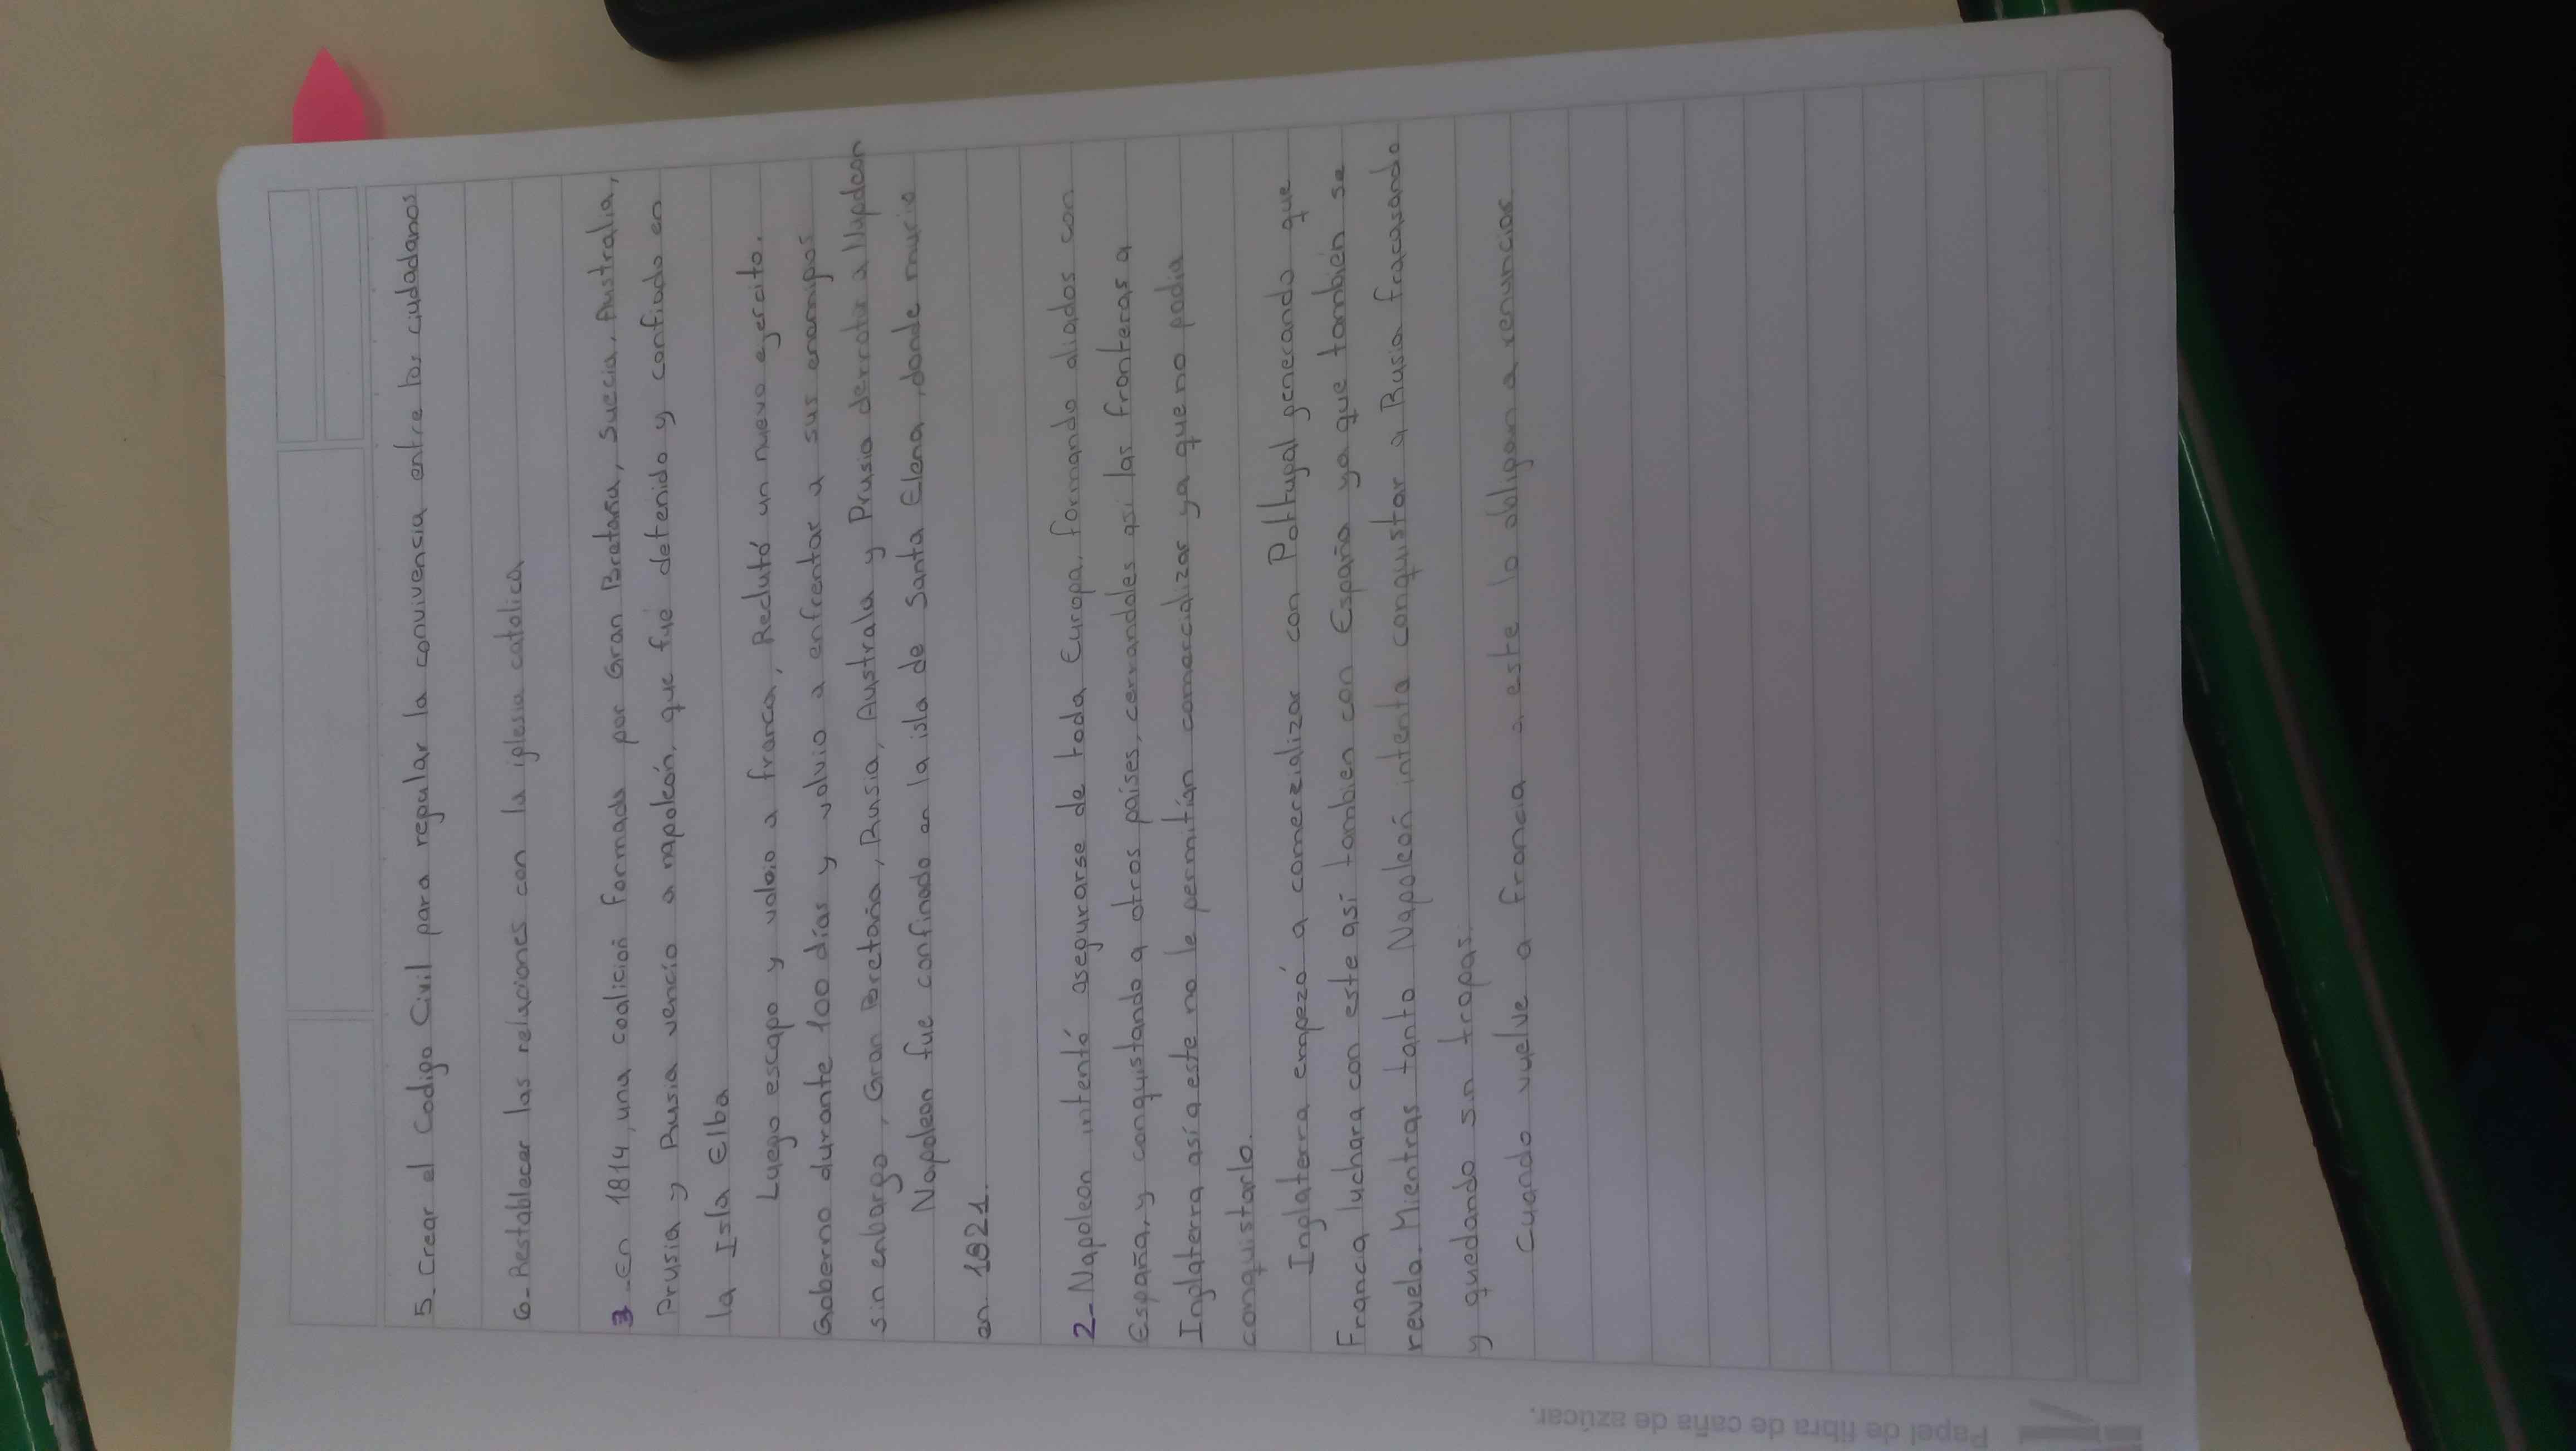 5- Crear el Codigo Civil para regular la convivencia entre los ciudadanos
6- Restablecer las relaciones con la iglesia catolica
3 - En 1814, una coalición formada por Gran Bretaña, Suecia, Australia,
Prusia y Rusia venció a napoleón, que fué detenido y confiado en
la Isla Elba
Luego escapo y volvio a franca, Reclutó un nuevo ejercito.
Goberno durante 100 días y volvio a enfrentar a sus enemigos
sin enbargo, Gran Bretaña, Rusia, Australa y Prusia derrotar a Napoleon
Napoleon fue confinado en la isla de Santa Elena, donde murio
en 1821.
2- Napoleon intentó asegurarse de toda Europa, formando aliados con
España, y conquistando a otros países, cerrandoles asi las fronteras a
Inglaterra así a este no le permitían comercializar ya que no podia
conquistarlo.
Inglaterra empezó a comerzializar con Portugal generando que
Francia luchara con este así tambien con España ya que también se
revela. Mientras tanto Napoleón intenta conquistar a Rusia fracasando
y quedando sin tropas.
Cuando vuelve a francia a este lo obligan a renunciar
Papel de fibra de caña de azúcar.